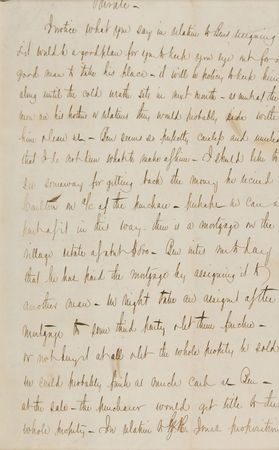 Private –
I notice what you say in relation to Ben's resigning
& it would be a good plan for you to keep your eye out for a
good man to take his place – it will be policy to keep him
along until the cold weath sets in next month – as most of the
men are his brothers or relatives they would probably side with
him please as – Ben seems so perfectly careless and
that I do not know what to make of him – I should like to
see some way for getting back the money he
on a/c of the purchase – perhaps we can a
part of it in this way – there is a mortgage on the
village estate of about $800 – Ben
that he has paid the mortgage by assigning it to
another man – We might take an assignt of the
mortgage to some third party & let them foreclose –
or not buy it at all & let the whole property be sold
we could probably find as much cash as Ben –
at the sale – the purchaser would get title to the
whole property – In relation to the Jones proposition